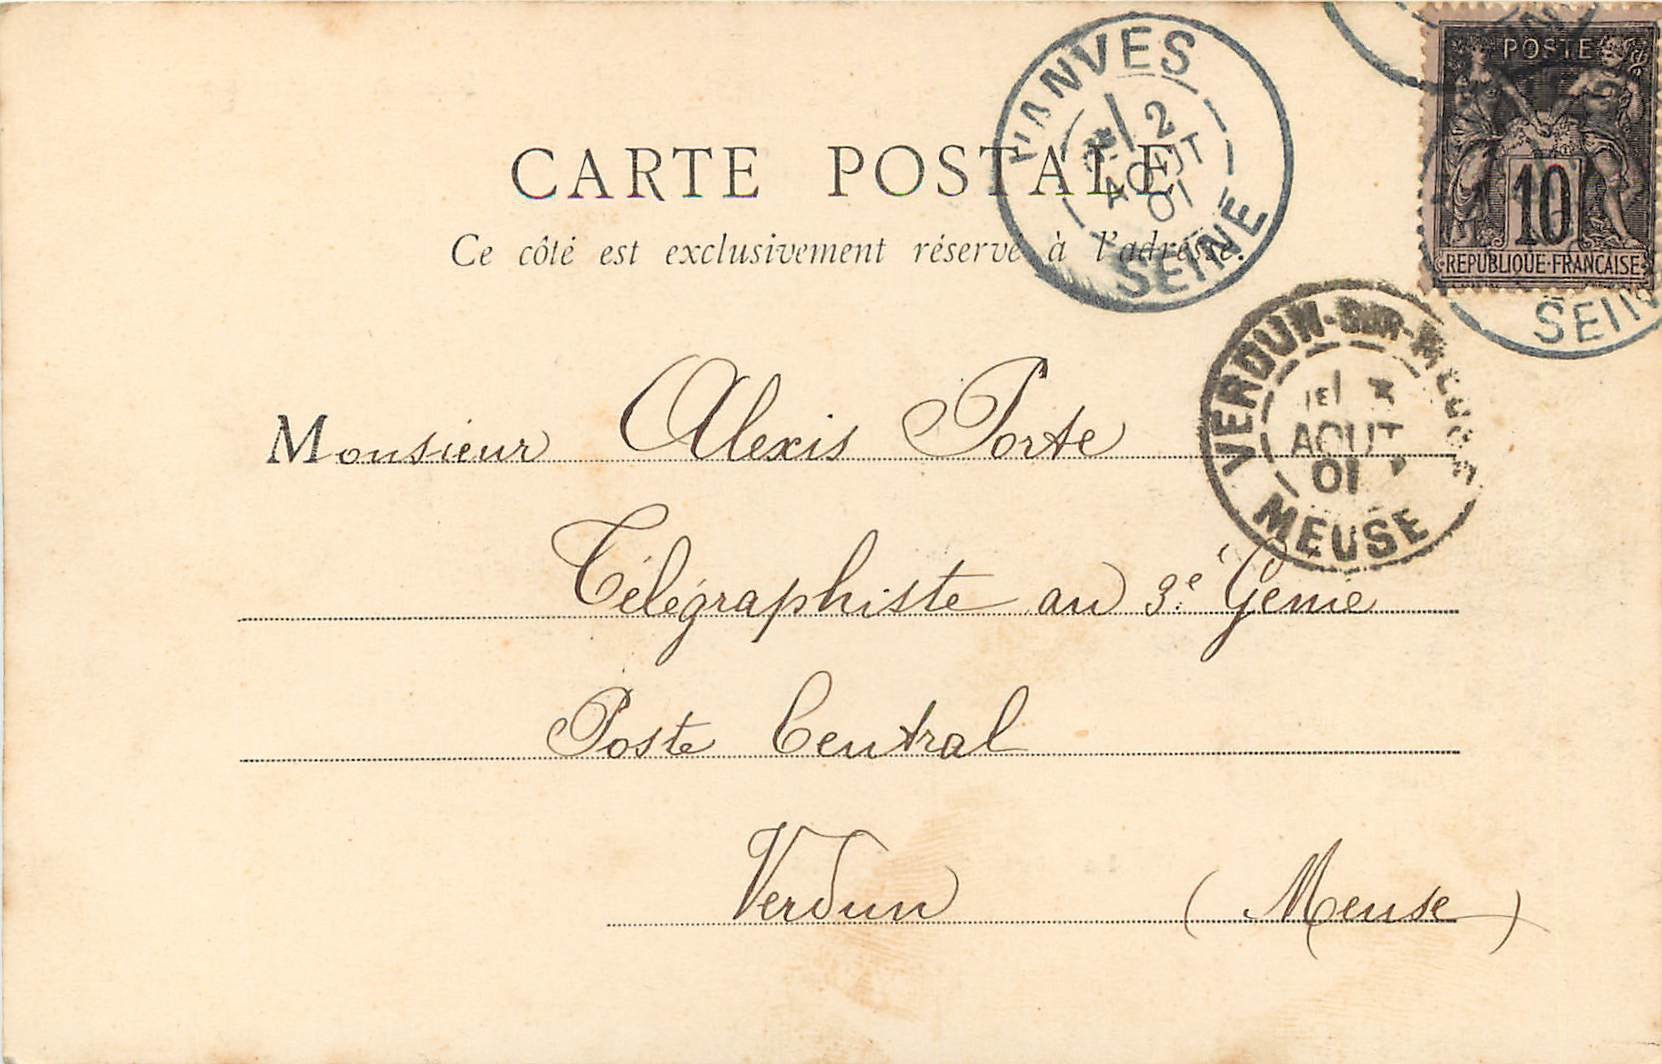 CARTE POSTALE
Ce côté est exclusivement réservé à l'adresse.
VANVES
2
AOUT
01
SEINE
POSTE
10
REPUBLIQUE FRANÇAISE
SEINE
VERDUN-SUR-MEUSE
AOUT
01
MEUSE
Monsieur Alexis Porte
Télégraphiste au 3e Génie
Poste Central
Verdun (Meuse)